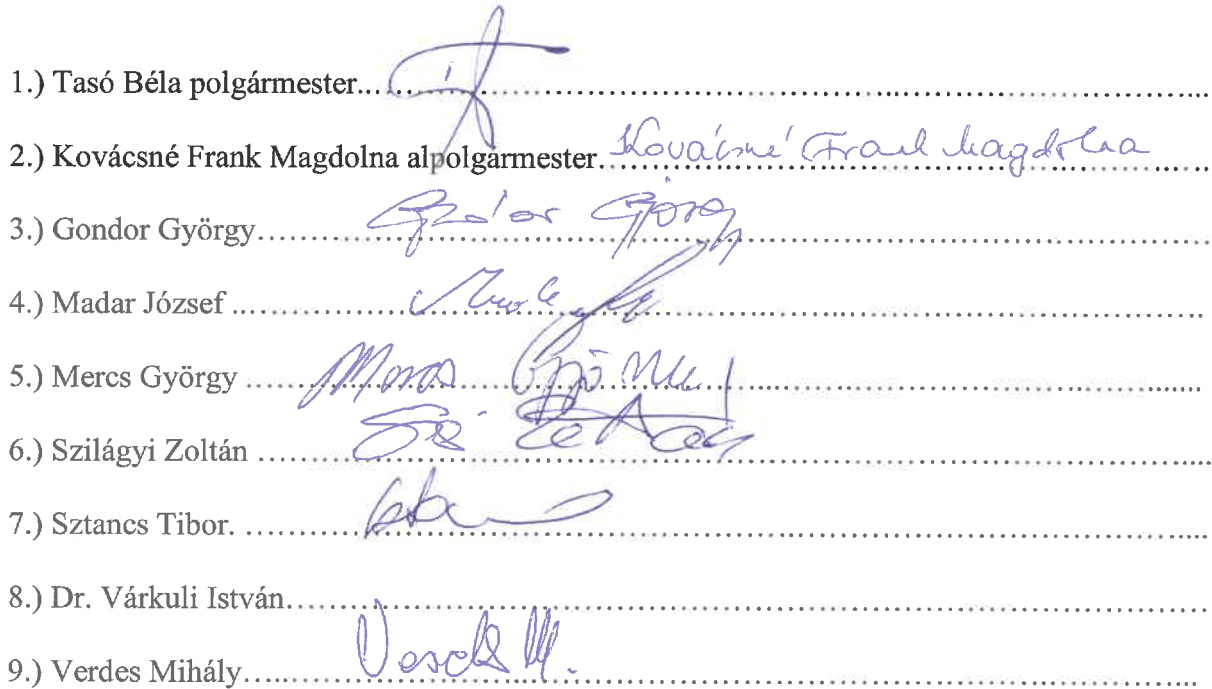 1.) Tasó Béla polgármester
2.) Kovácsné Frank Magdolna alpolgármester. Kovácsné Frank Magdolna
3.) Gondor György
4.) Madar József
5.) Mercs György
6.) Szilágyi Zoltán
7.) Sztancs Tibor.
8.) Dr. Várkuli István
9.) Verdes Mihály